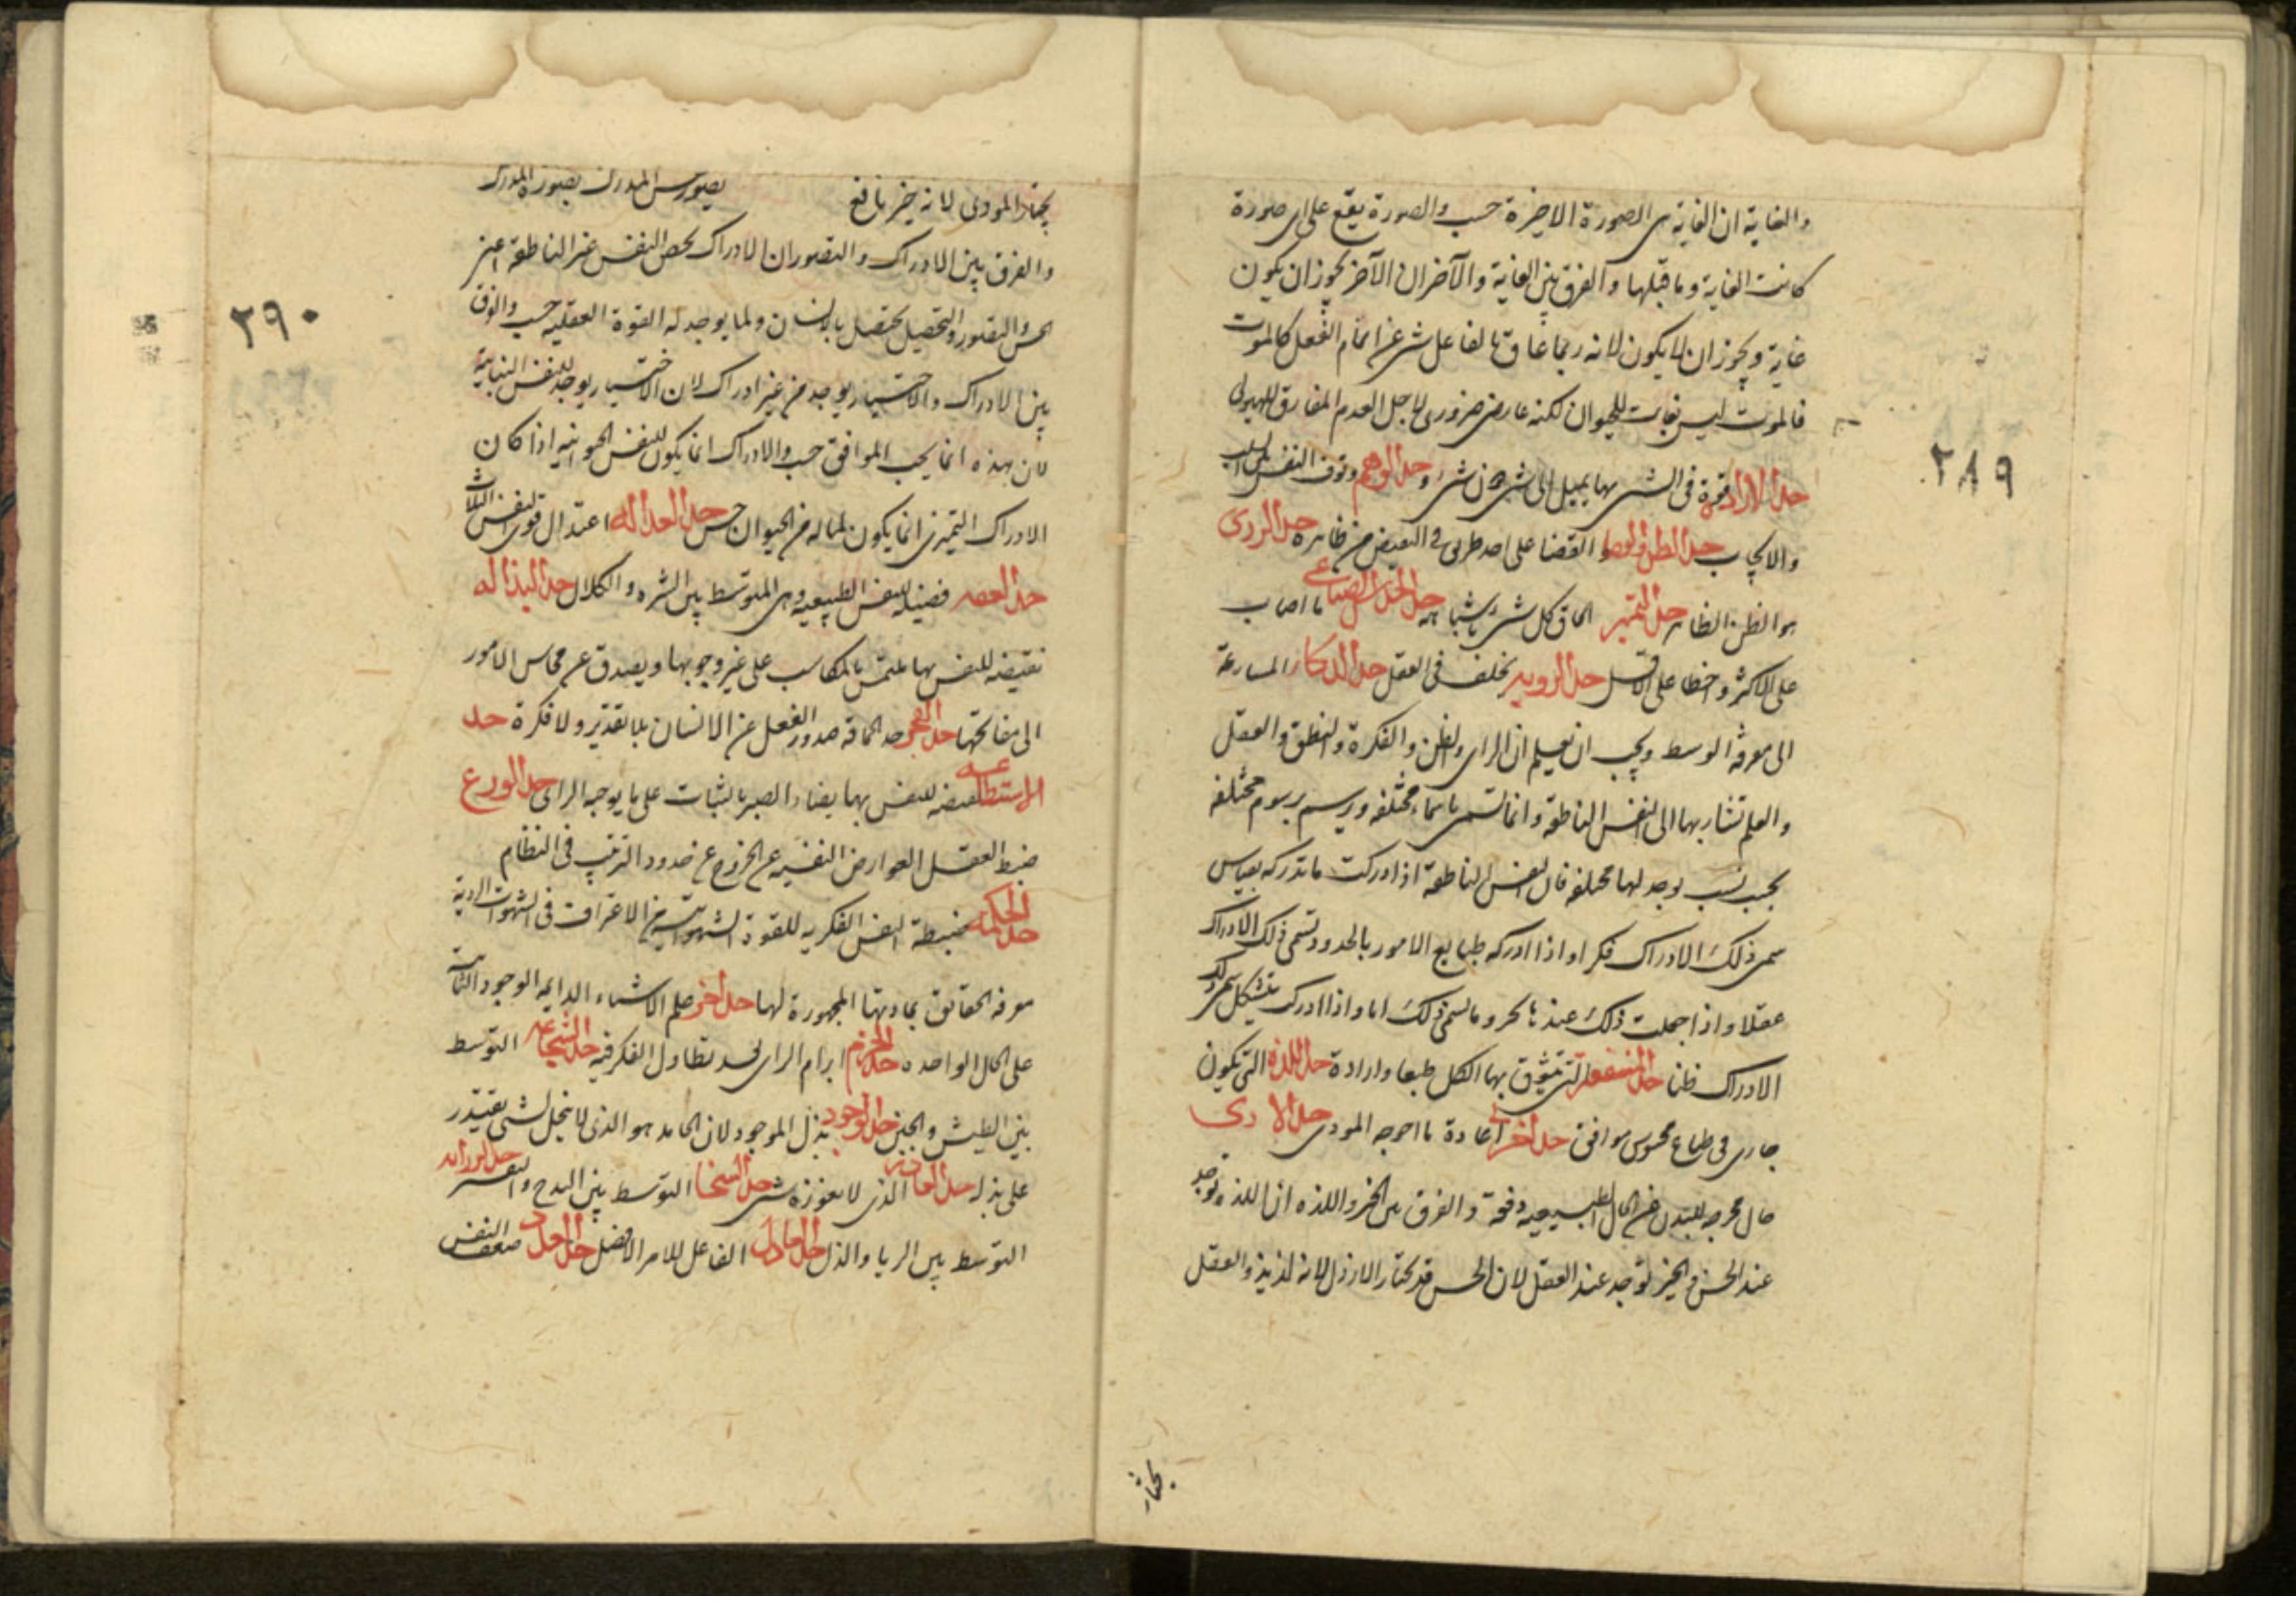 والغاية ان الغاية هى الصورة الاخيرة حسب والصورة يقع على اى صورة
كانت الغاية وما قبلها والفرق بين الغاية والآخر ان الآخر يجوز ان يكون
غاية ويجوز ان لا يكون لانه ربما عاق بالفاعل شى عن اتمام الفعل كالموت
فالموت ليس بغاية للحيوان لكنه عارض ضرورى لاجل العدم المفارق للهيولى
٢٨٩
حد الارادة قوة فى الشى بها يميل الى شى دون شى وحد الوهم وقوف النفس بين السلب
والايجاب حد الظن القضا على احد طرفى التعيض من ظاهره حد الردى
هو الظن الظاهر حد التميز الحاق كل شى باشباهه حد الحدس الصناعى ما اصاب
على الاكثر واخطا على الاقل حد الروية تخلف فى العقل حد الذكاء المسارعة
الى معرفة الوسط ويجب ان تعلم ان الراى والظن والفكرة والنطق والعقل
والعلم تشار بها الى النفس الناطقة وانما تسمى باسماء مختلفة ويرسم برسوم مختلفة
بحسب نسب يوجد لها مختلفة فان النفس الناطقة اذا ادركت ما تدركه بقياس
سمى ذلك الادراك فكرا واذا ادركه طبايع الامور بالحدود تسمى ذلك الادراك
عقلا واذا جعلت ذلك عند ما يسمى ذلك اما واذا ادرك بتشكل سمى ذلك
الادراك ظنا حد المنفعة التى يتشوق بها الكل طبعا وارادة حد اللذة التى يكون
جارى فى طباع محسوس موافق حد اخر اعادة ما اخرجه الموذى حد الاذى
حال مخرجه للبدن عن الحال الطبيعية دفعة والفرق بين الخير واللذه ان اللذه توجد
عند الحس والخير توجد عند العقل لان الحس قد يختار الارذل لانه لذيذ والعقل
يختار
يختار الموذى لانه خير نافع تصور المدرك بصورة المدرك
والفرق بين الادراك والتصور ان الادراك يخص النفس غير الناطقة اعنى
الحس والتصور والتحصيل يختص بالانسان ولما يوجد له القوة العقليه حسب والفرق
٢٩٠
بين الادراك والاختيار يوجد من غير ادراك لان الاختيار يوجد للنفس النباتية
لان هذه انما يحب الموافق حسب والادراك انما يكون للنفس الحيوانيه اذا كان
الادراك التميزى انما يكون لما له من الحيوان حس حد العداله اعتدال قوى النفس الثلاث
حد العفه فضيلة للنفس الطبيعيه وهى المتوسط بين الشره والكلال حد البذاله
نقيضه للنفس بها تلتمس بالمكاسب على غير وجوبها ويصدق عن محاسن الامور
الى مقابحها حد الحماقة صدور الفعل عن الانسان بلا تقدير ولا فكرة حد
الاستطاعه للنفس بها يضاد الصبر بالثبات على ما يوجبه الراى حد الورع
ضبط العقل العوارض النفسيه عن الخروج عن حدود الترتيب فى النظام
حد الحكمه ضبطة النفس الفكريه للقوة الشهوانية من الاغراق فى الشهوات الردية
معرفه الحقايق حد اخر علم الاشياء الدايمه الوجود الثابت
على الحال الواحده حد الحزم ابرام الراى بعد تطاول الفكر فيه حد الشجاعه التوسط
بين الطيش والجبن حد الجود بذل الموجود لان الجايد هو الذى لا يبخل لشى يقتدر
على بذله حد القادر الذى لا يعوزه شى حد السخا التوسط بين البذخ والتقتير حد الرزانه
التوسط بين الريا والذل حد العادل الفاعل للامر الافضل ضعف النفس